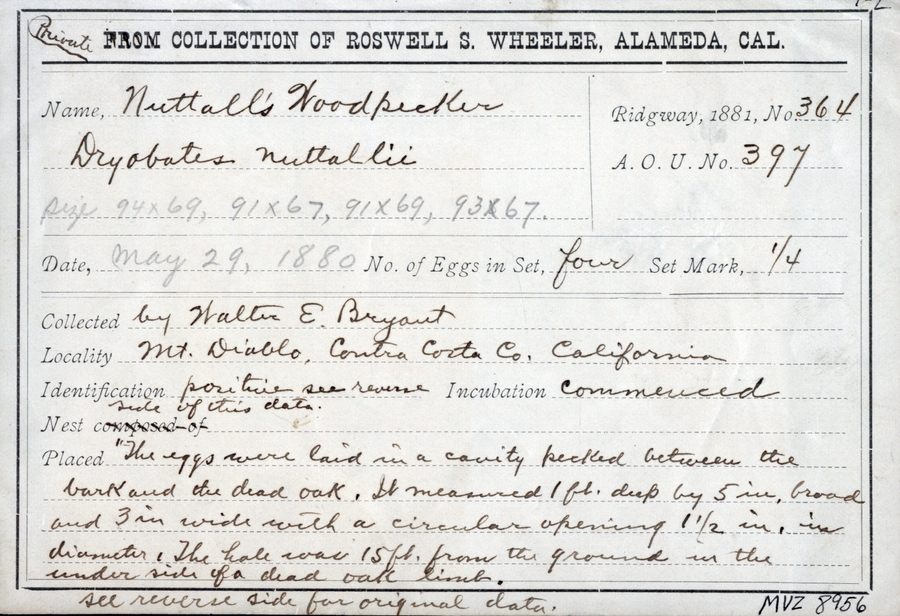 Private FROM COLLECTION OF ROSWELL S. WHEELER, ALAMEDA, CAL.
Name, Nuttall's Woodpecker
Ridgway, 1881, No. 364
Dryobates nuttallii
A. O. U. No. 397
size 94x69, 91x67, 91x69, 93x67.
Date, May 29, 1880 No. of Eggs in Set, four Set Mark, 1/4
Collected by Walter E. Bryant
Locality Mt. Diablo, Contra Costa Co. California
Identification positive see reverse Incubation commenced
side of this data.
Nest composed of
Placed "The eggs were laid in a cavity pecked between the
bark and the dead oak. It measured 1 ft. deep by 5 in, broad
and 3 in wide with a circular opening 1 1/2 in. in
diameter. The hole was 15 ft. from the ground in the
under side of a dead oak limb.
see reverse side for original data.
MVZ 8956